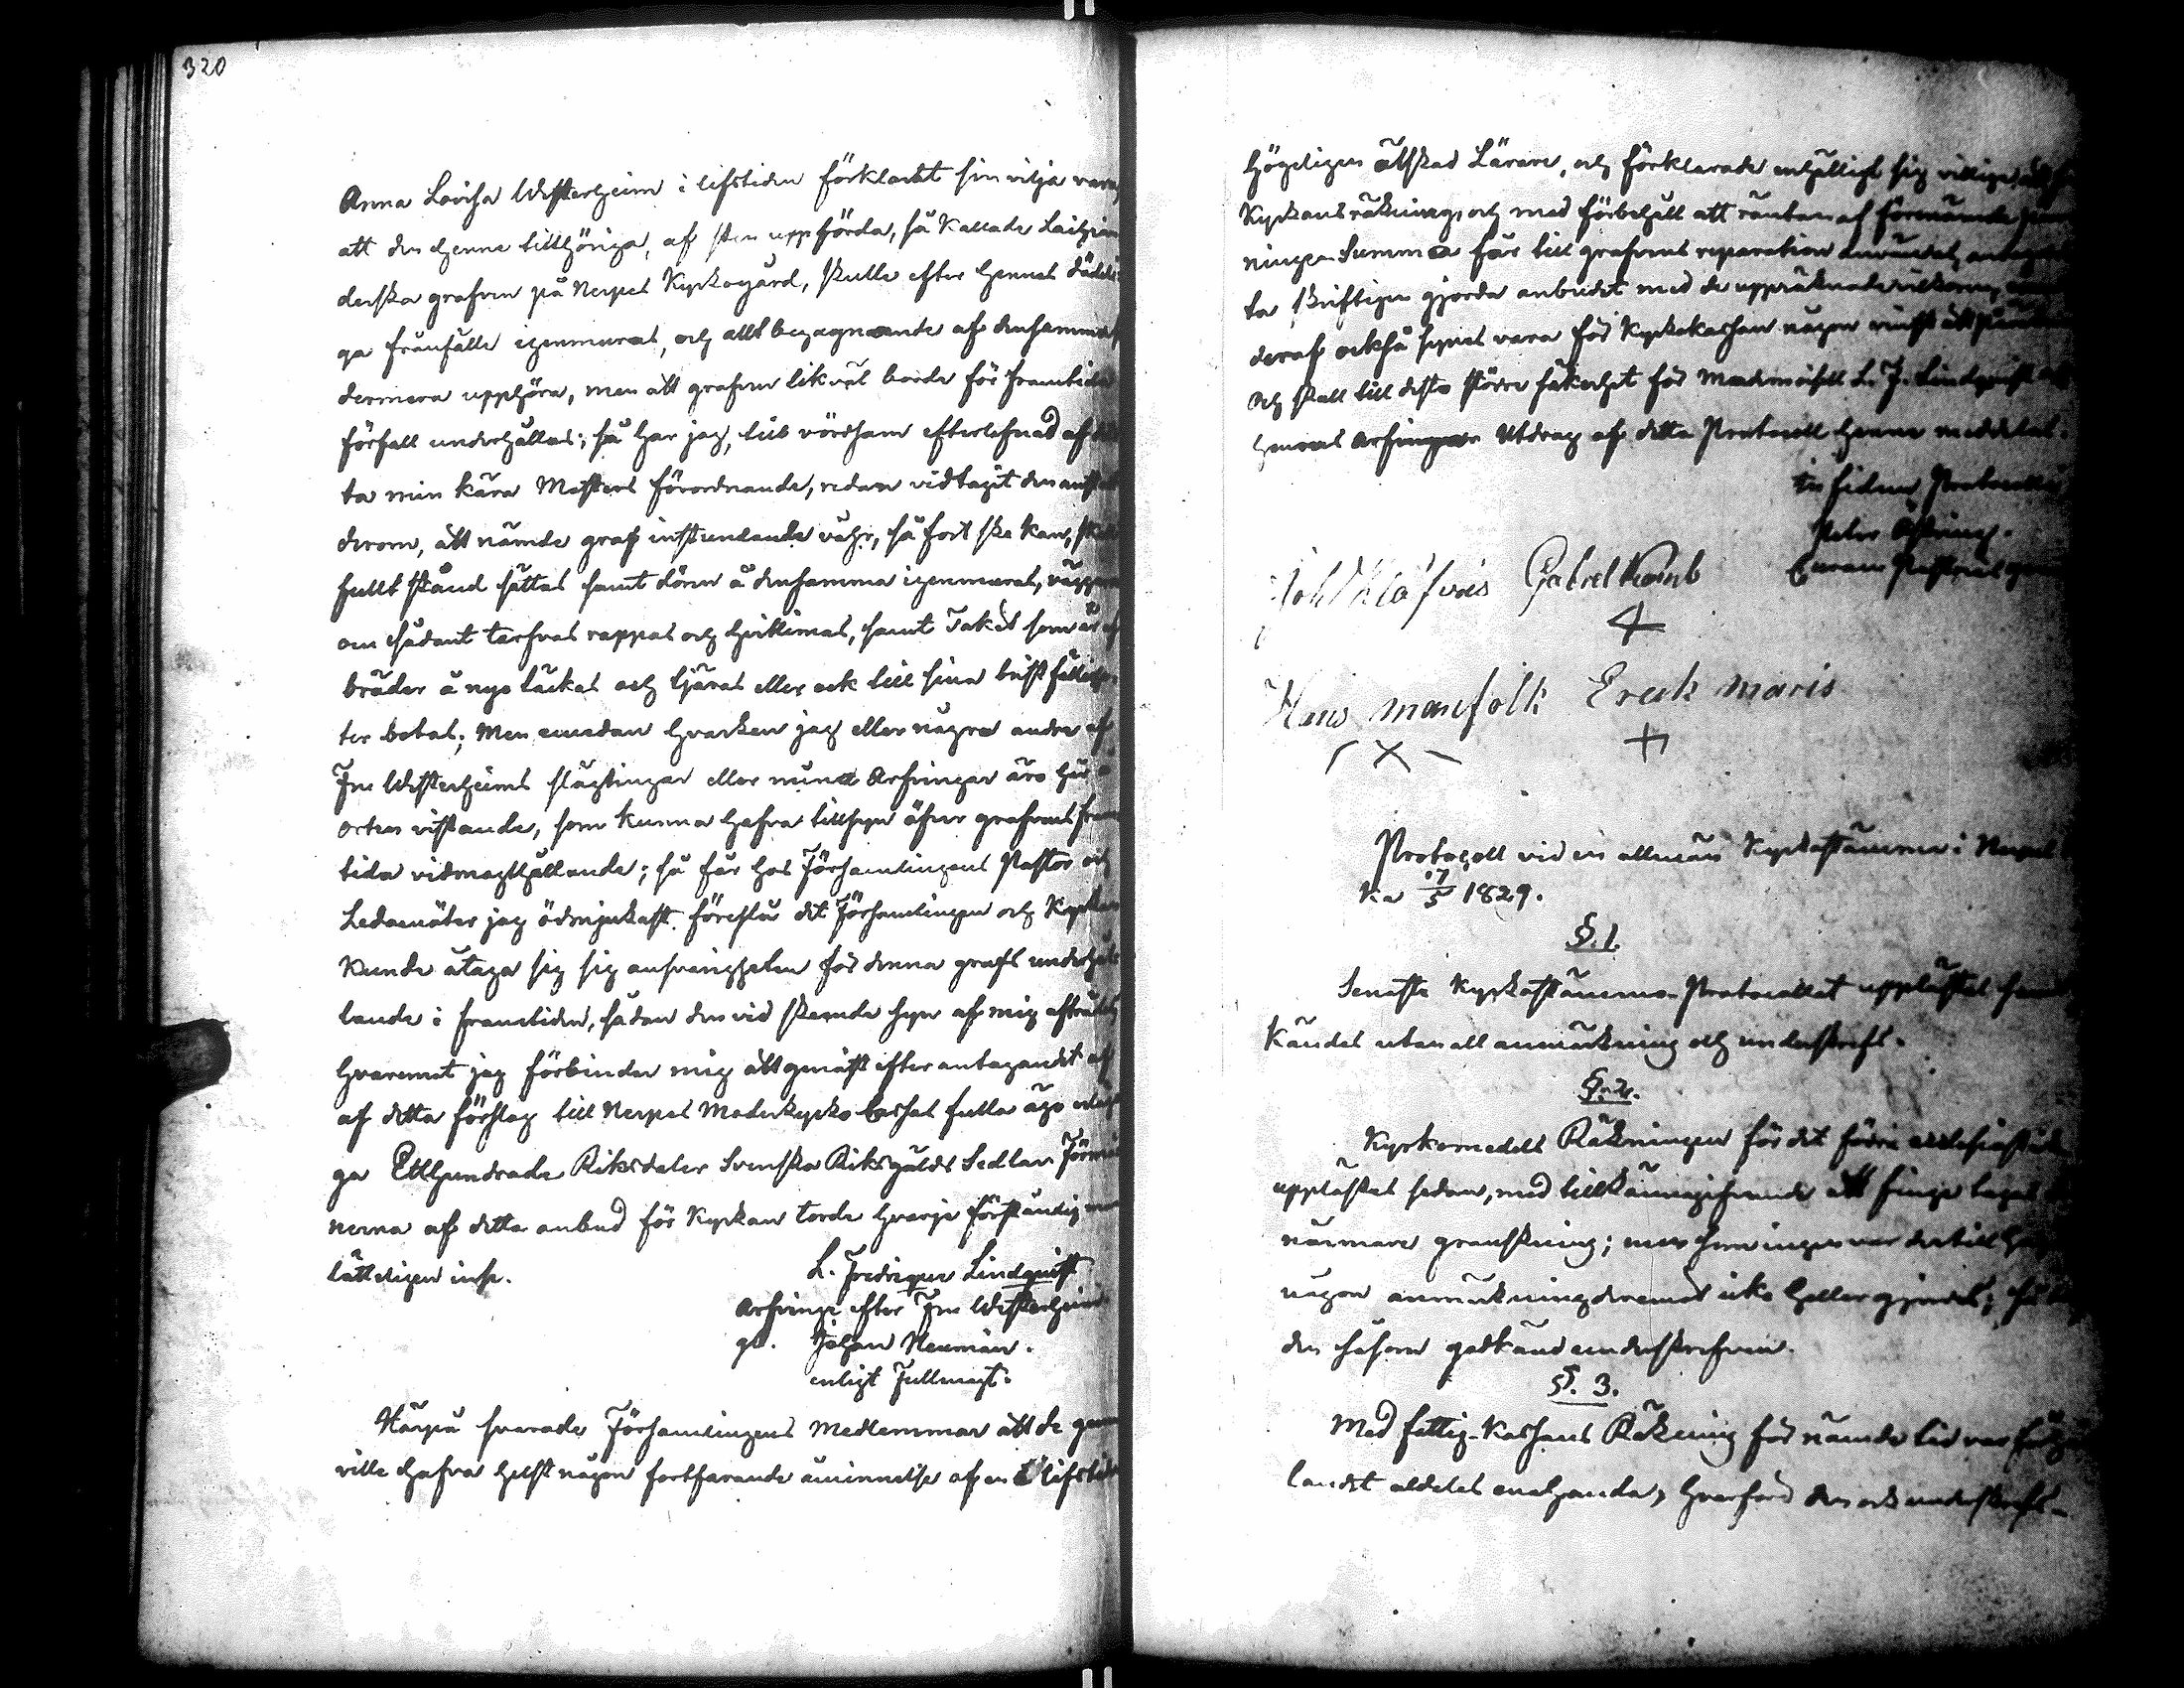 320
Anna Lovisa Westerheim i lifstiden förklarat sin vilja vara,
att den henne tillhöriga, af sten uppförda, så kallade
derska grafven på Nerpes Kyrkogård, skulle efter hennes dödeli-
ga frånfälle igenmuras, och allt begagnande af densamma
dermera upphöra, men att grafven likväl borde för framtida
förfall underhållas; så har jag, till vördsam efterlefnad af
ta min kära Mosters förordnande, redan vidtagit den anstalt
derom, att nämde graf instundande vahr, så fort ske kan,
fullt stånd sättas samt dören å densamma igenmuras, väggarna
om sådant tarfvas rappas och hvitlimas, samt Taket som är af
bräder å nyo täckes och tjäras eller ock till sina bristfällighe-
ter botas; Men emedan hvarken jag eller några andra af
Fru Westerheims slägtingar eller mina Arfvingar äro här å
orten vistande, som kunna hafva tillsyn öfver grafvens fram-
tida vidmagthållande; så får hos Församlingens Pastor och
Ledamöter jag ödmjukast föreslå det Församlingen och Kyrkan
kunde åtaga sig sig ansvarigheten för denna grafs underhål-
lande i framtiden, sådan den vid skeende syn af mig afträdes
hvaremot jag förbinder mig att genast efter antagandet af
af detta förslag till Nerpes Moderkyrko Cassas fulla ägo erläg-
ga Etthundrade Riksdaler Svenska Riksgälds Sedlar. Förmå-
nerna af detta anbud för Kyrkan torde hvarje förståndig man
lätteligen inse.
L. Fredrique Lindquist
Arfvinge efter Fru Westerheim
gm. Johan Neuman.
enligt Fullmagt.
Härpå svarade Församlingens Medlemmar att de gerna
ville hafva helst någon fortfarande åminnelse af en i lifstiden
högeligen älskad Lärare, och förklarade enhälligt sig villige att
Kyrkans räkning, och med förbehåll att räntan af förenämnde pen-
ninge Summa får till grafvens reparation användas, antaga
ta skriftligen gjorda anbudet med de uppräknade vilkoren,
deraf också synes vara för Kyrkokassan någon vinst att
Och skall till desto större säkerhet för Mademoisell L. F. Lindquist och
hennes Arfvingar Utdrag af detta Protocoll henne meddelas.
In fidem Protocolli
Peter Östring.
Johl Klåfvus Gabriel Kainb
Hans manfolk Erich maris
Protocoll vid en allmän Kyrkostämma i Nerpes
Ka 17/5 1829.
§. 1.
Senaste Kyrkostämmo-Protocollet upplästes
kändes utan all anmärkning och underskrefs.
§. 2.
Kyrkomedels Räkningen för det förra ecclesiastik
upplästes sedan, med tillkännagifvande att finge tagas
närmare granskning; men som ingen var dertill
någon anmärkning deremot icke heller gjordes; så
den såsom godkänd underskrefven.
§. 3.
Med fattig-Kassans Räkning för nämde tid var
landet aldeles enahanda, hvarföre den ock underskrefs.